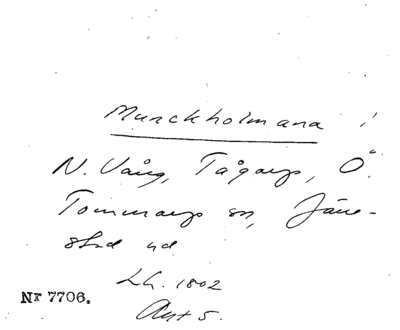 Murckholmana
N. Vång, Tågarp, Ö.
Tommarps sn, Järre-
stad hd
Lh. 1802
Akt 5.
Nr 7706.